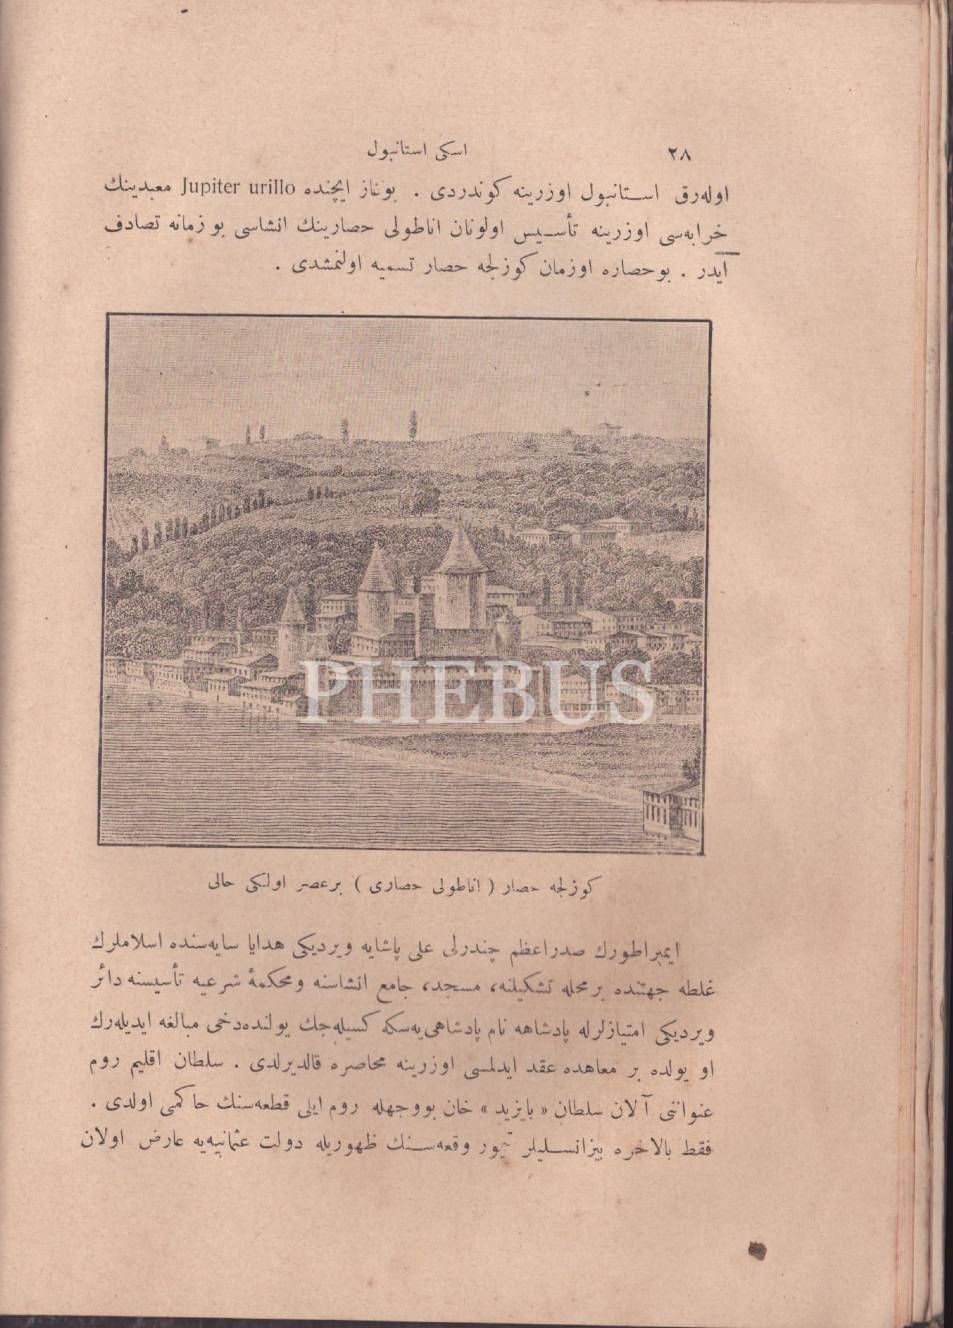 ٢٨
اسكی استانبول
اوله‌رق استانبول اوزرینه كوندردی . بوغاز ایچنده Jupiter urillo معبدینك
خرابه‌سی اوزرینه تأسیس اولونان اناطولی حصارینك انشاسی بو زمانه تصادف
ایدر . بوحصاره اوزمان كوزلجه حصار تسمیه اولنمشدی .
PHEBUS
كوزلجه حصار ( اناطولی حصاری ) برعصر اولكی حالی
ایمپراطورك صدراعظم چندرلی علی پاشایه ویردیكی هدایا سایه‌سنده اسلاملرك
غلطه جهتنده بر محله تشكیلنه، مسجد، جامع انشاسنه ومحكمهٔ شرعیه تأسیسنه دائر
ویردیكی امتیازلرله پادشاهه نام پادشاهی‌یه سكه كسیله‌جك یولنده‌دخی مبالغه ایدیله‌رك
او یولده بر معاهده عقد ایدلمسی اوزرینه محاصره قالدیرلدی . سلطان اقلیم روم
عنواننی آلان سلطان « بایزید » خان بووجهله روم ایلی قطعه‌سنك حاكمی اولدی .
فقط بالاخره بیزانسلیلر تیمور وقعه‌سنك ظهوریله دولت عثمانیه‌یه عارض اولان